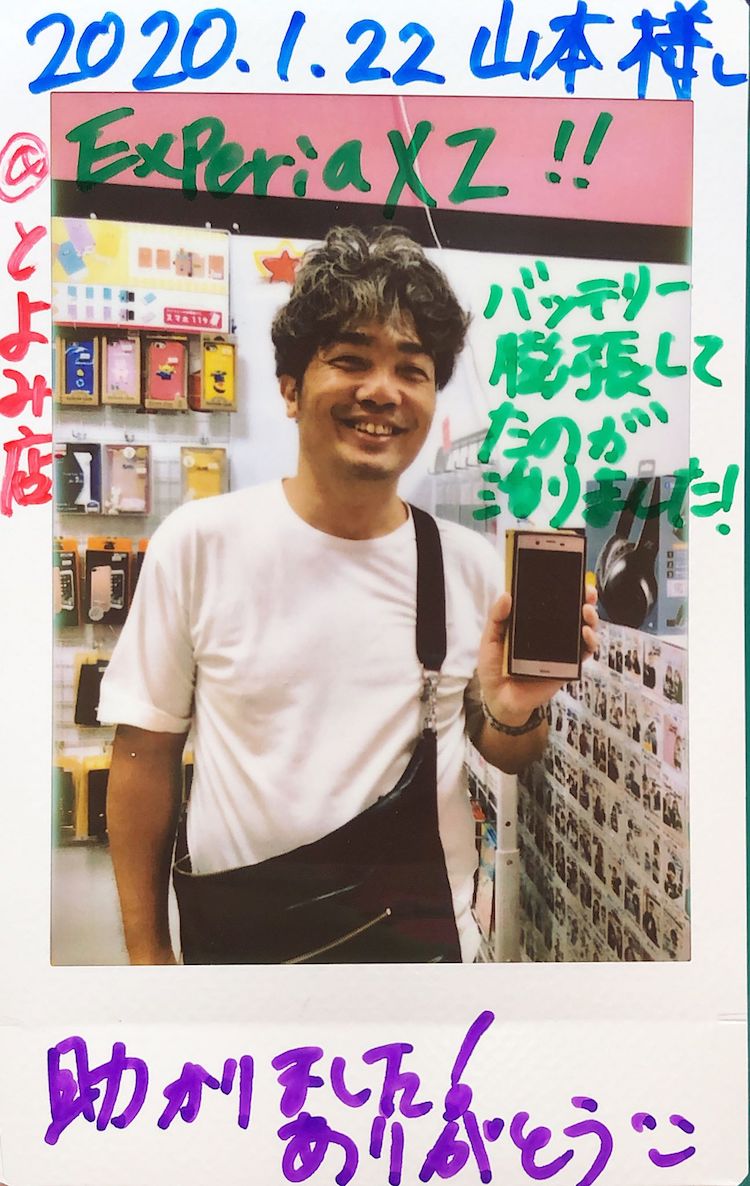 2020.1.22 山本様し
@とよみ店
ExPeria XZ !!
バッテリー
膨張して
たのが
治りました!
スマホ119
助かりました!
ありがとう